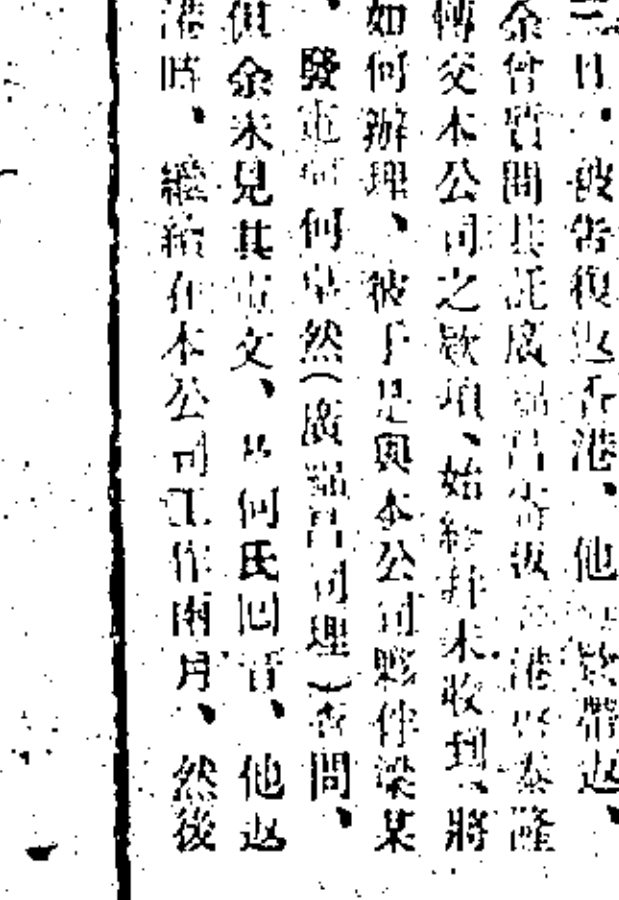 三日、被告復返香港、他 欵帶返、
余曾質問其託廣福昌 滙返 港 泰隆
轉交本公司之欵項、始終並未收到、將
如何辦理、彼于是與本公司夥伴梁某
、發電 何 然(廣福昌司理)查問、
但余未見其電文、 何氏回音、他返
港時、繼續在本公司工作兩月、然後